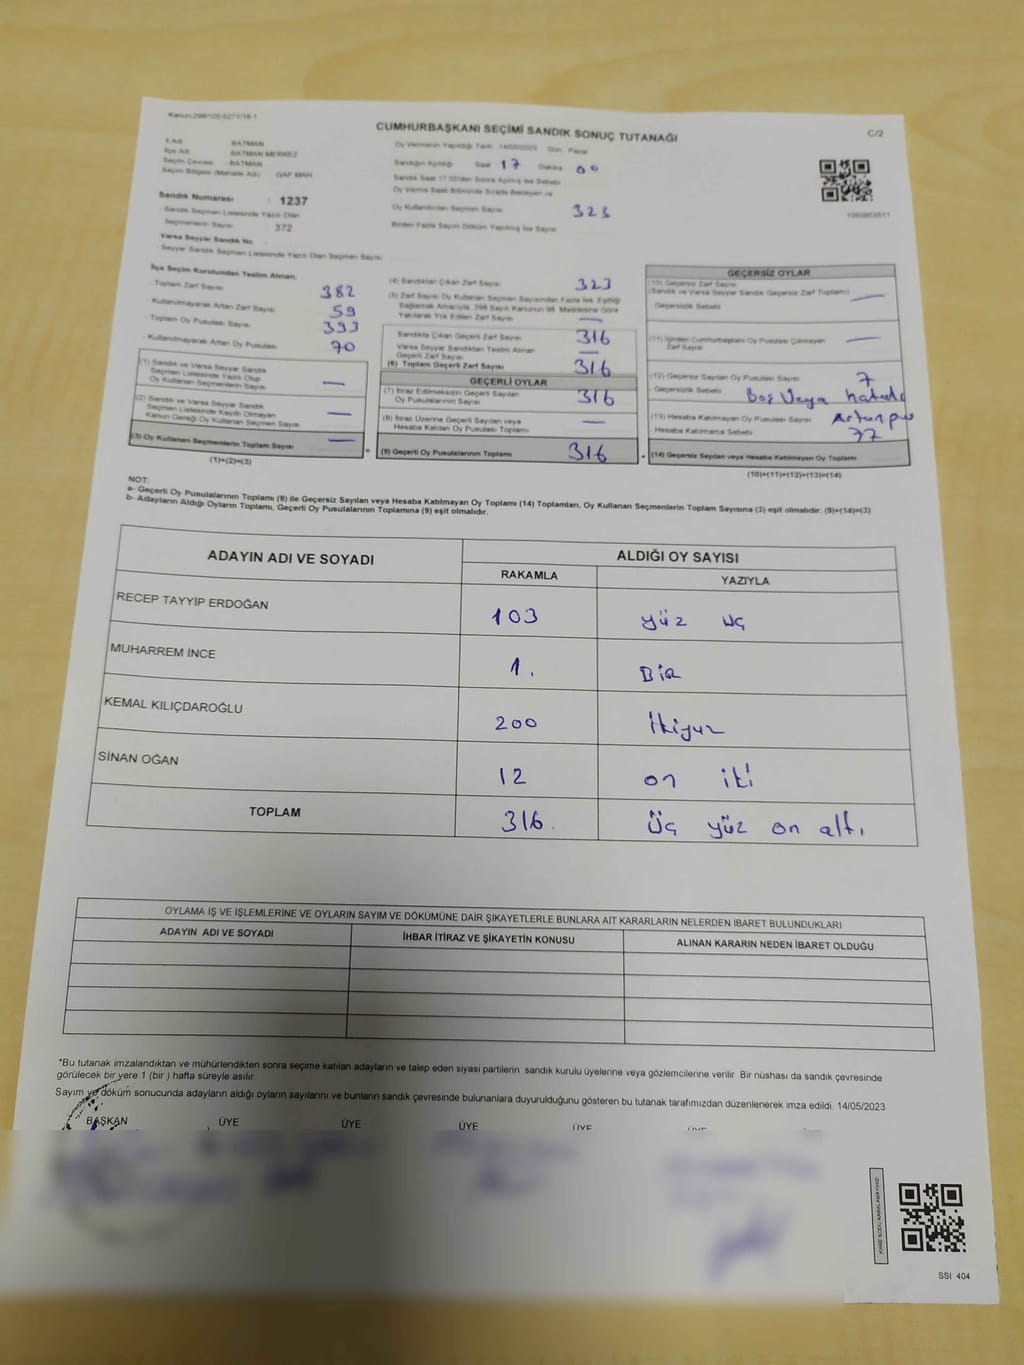 Kanun:298/105,6271/16-1
C/2
CUMHURBAŞKANI SEÇİMİ SANDIK SONUÇ TUTANAĞI
İl Adı : BATMAN
İlçe Adı : BATMAN MERKEZ
Seçim Çevresi : BATMAN
Seçim Bölgesi (Mahalle Adı) : GAP MAH
Sandık Numarası : 1237
Sandık Seçmen Listesinde Yazılı Olan
Seçmenlerin Sayısı : 372
Varsa Seyyar Sandık No
Seyyar Sandık Seçmen Listesinde Yazılı Olan Seçmen Sayısı
Oy Vermenin Yapıldığı Tarih 14/05/2023 Gün Pazar
Sandığın Açıldığı Saat 17 Dakika 00
Sandık Saat 17.00'den Sonra Açılmış İse Sebebi
Oy Verme Saati Bitiminde Sırada Bekleyen ve
Oy Kullandırılan Seçmen Sayısı 323
Birden Fazla Sayım Döküm Yapılmış İse Sayısı
İlçe Seçim Kurulundan Teslim Alınan;
- Toplam Zarf Sayısı 382
- Kullanılmayarak Artan Zarf Sayısı 59
- Toplam Oy Pusulası Sayısı 393
- Kullanılmayarak Artan Oy Pusulası 70
(1) Sandık ve Varsa Seyyar Sandık
Seçmen Listesinde Yazılı Olup
Oy Kullanan Seçmenlerin Sayısı —
(2) Sandık ve Varsa Seyyar Sandık
Seçmen Listesinde Kayıtlı Olmayan
Kanun Gereği Oy Kullanan Seçmen Sayısı —
(3) Oy Kullanan Seçmenlerin Toplam Sayısı —
(1)+(2)=(3)
(4) Sandıktan Çıkan Zarf Sayısı 323
(5) Zarf Sayısı Oy Kullanan Seçmen Sayısından Fazla İse, Eşitliği
Sağlamak Amacıyla, 298 Sayılı Kanunun 98. Maddesine Göre
Yakılarak Yok Edilen Zarf Sayısı —
Sandıkta Çıkan Geçerli Zarf Sayısı 316
Varsa Seyyar Sandıktan Teslim Alınan
Geçerli Zarf Sayısı —
(6) Toplam Geçerli Zarf Sayısı 316
GEÇERLİ OYLAR
(7) İtiraz Edilmeksizin Geçerli Sayılan
Oy Pusulalarının Sayısı 316
(8) İtiraz Üzerine Geçerli Sayılan veya
Hesaba Katılan Oy Pusulası Toplamı —
(9) Geçerli Oy Pusulalarının Toplamı 316
GEÇERSİZ OYLAR
(10) Geçersiz Zarf Sayısı
(Sandık ve Varsa Seyyar Sandık Geçersiz Zarf Toplamı) —
- Geçersizlik Sebebi
(11) İçinden Cumhurbaşkanı Oy Pusulası Çıkmayan
Zarf Sayısı —
(12) Geçersiz Sayılan Oy Pusulası Sayısı 7
- Geçersizlik Sebebi Boş Veya hatalı
(13) Hesaba Katılmayan Oy Pusulası Sayısı
- Hesaba Katılmama Sebebi 77
(14) Geçersiz Sayılan veya Hesaba Katılmayan Oy Toplamı
(10)+(11)+(12)+(13)=(14)
NOT:
a- Geçerli Oy Pusulalarının Toplamı (9) ile Geçersiz Sayılan veya Hesaba Katılmayan Oy Toplamı (14) Toplamları, Oy Kullanan Seçmenlerin Toplam Sayısına (3) eşit olmalıdır. (9)+(14)=(3)
b- Adayların Aldığı Oyların Toplamı, Geçerli Oy Pusulalarının Toplamına (9) eşit olmalıdır.
ADAYIN ADI VE SOYADI ALDIĞI OY SAYISI
RAKAMLA YAZIYLA
RECEP TAYYİP ERDOĞAN 103 yüz üç
MUHARREM İNCE 1. Bir
KEMAL KILIÇDAROĞLU 200 İkiyüz
SİNAN OĞAN 12 on iki
TOPLAM 316. Üç yüz on altı.
OYLAMA İŞ VE İŞLEMLERİNE VE OYLARIN SAYIM VE DÖKÜMÜNE DAİR ŞİKAYETLERLE BUNLARA AİT KARARLARIN NELERDEN İBARET BULUNDUKLARI
ADAYIN ADI VE SOYADI İHBAR İTİRAZ VE ŞİKAYETİN KONUSU ALINAN KARARIN NEDEN İBARET OLDUĞU
*Bu tutanak imzalandıktan ve mühürlendikten sonra seçime katılan adayların ve talep eden siyasi partilerin sandık kurulu üyelerine veya gözlemcilerine verilir. Bir nüshası da sandık çevresinde
görülecek bir yere 1 (bir ) hafta süreyle asılır.
Sayım ve döküm sonucunda adayların aldığı oyların sayılarını ve bunların sandık çevresinde bulunanlara duyurulduğunu gösteren bu tutanak tarafımızdan düzenlenerek imza edildi. 14/05/2023
BAŞKAN ÜYE ÜYE ÜYE ÜYE ÜYE
KARE KODU KARALAMAYINIZ!
SSI 404